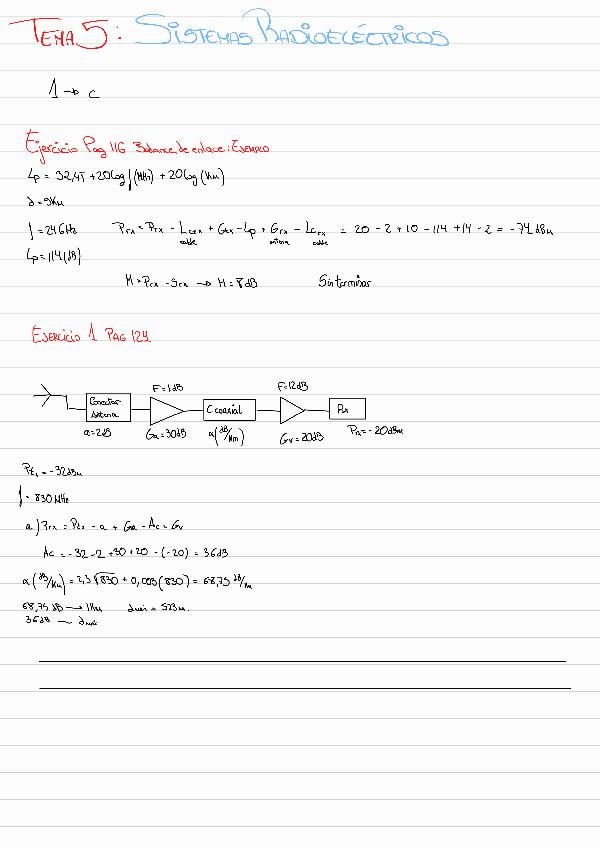 TEMA 5: SISTEMAS RADIOELÉCTRICOS
1 → c
Ejercicio Pag 116 Balance de enlace: EJEMPLO
Lp = 32,45 + 20log f(MHz) + 20log (Km)
d = 5Km
f = 2.4 GHz
Prx = Ptx - Lctx + Gtx - Lp + Grx - Lcrx = 20 - 2 + 10 - 114 + 14 - 2 = -74 dBm
cable antena cable
Lp = 114 (dB)
M = Prx - Srx → M = 8 dB Sin terminar
EJERCICIO 1 PAG 124
F = 1dB F = 12dB
Conector Antena C coaxial Rx
a = 2dB Ga = 30dB α(dB/Km) Gr = 20dB Prx = -20dBm
Ptx = -32dBm
f = 830 MHz
a) Prx = Ptx - a + Ga - Ac + Gr
Ac = -32 - 2 + 30 + 20 - (-20) = 36dB
α (dB/Km) = 2,3√830 + 0,003(830) = 68,75 dB/Km
68,75 dB → 1Km dmáx = 523m.
36dB — dmáx